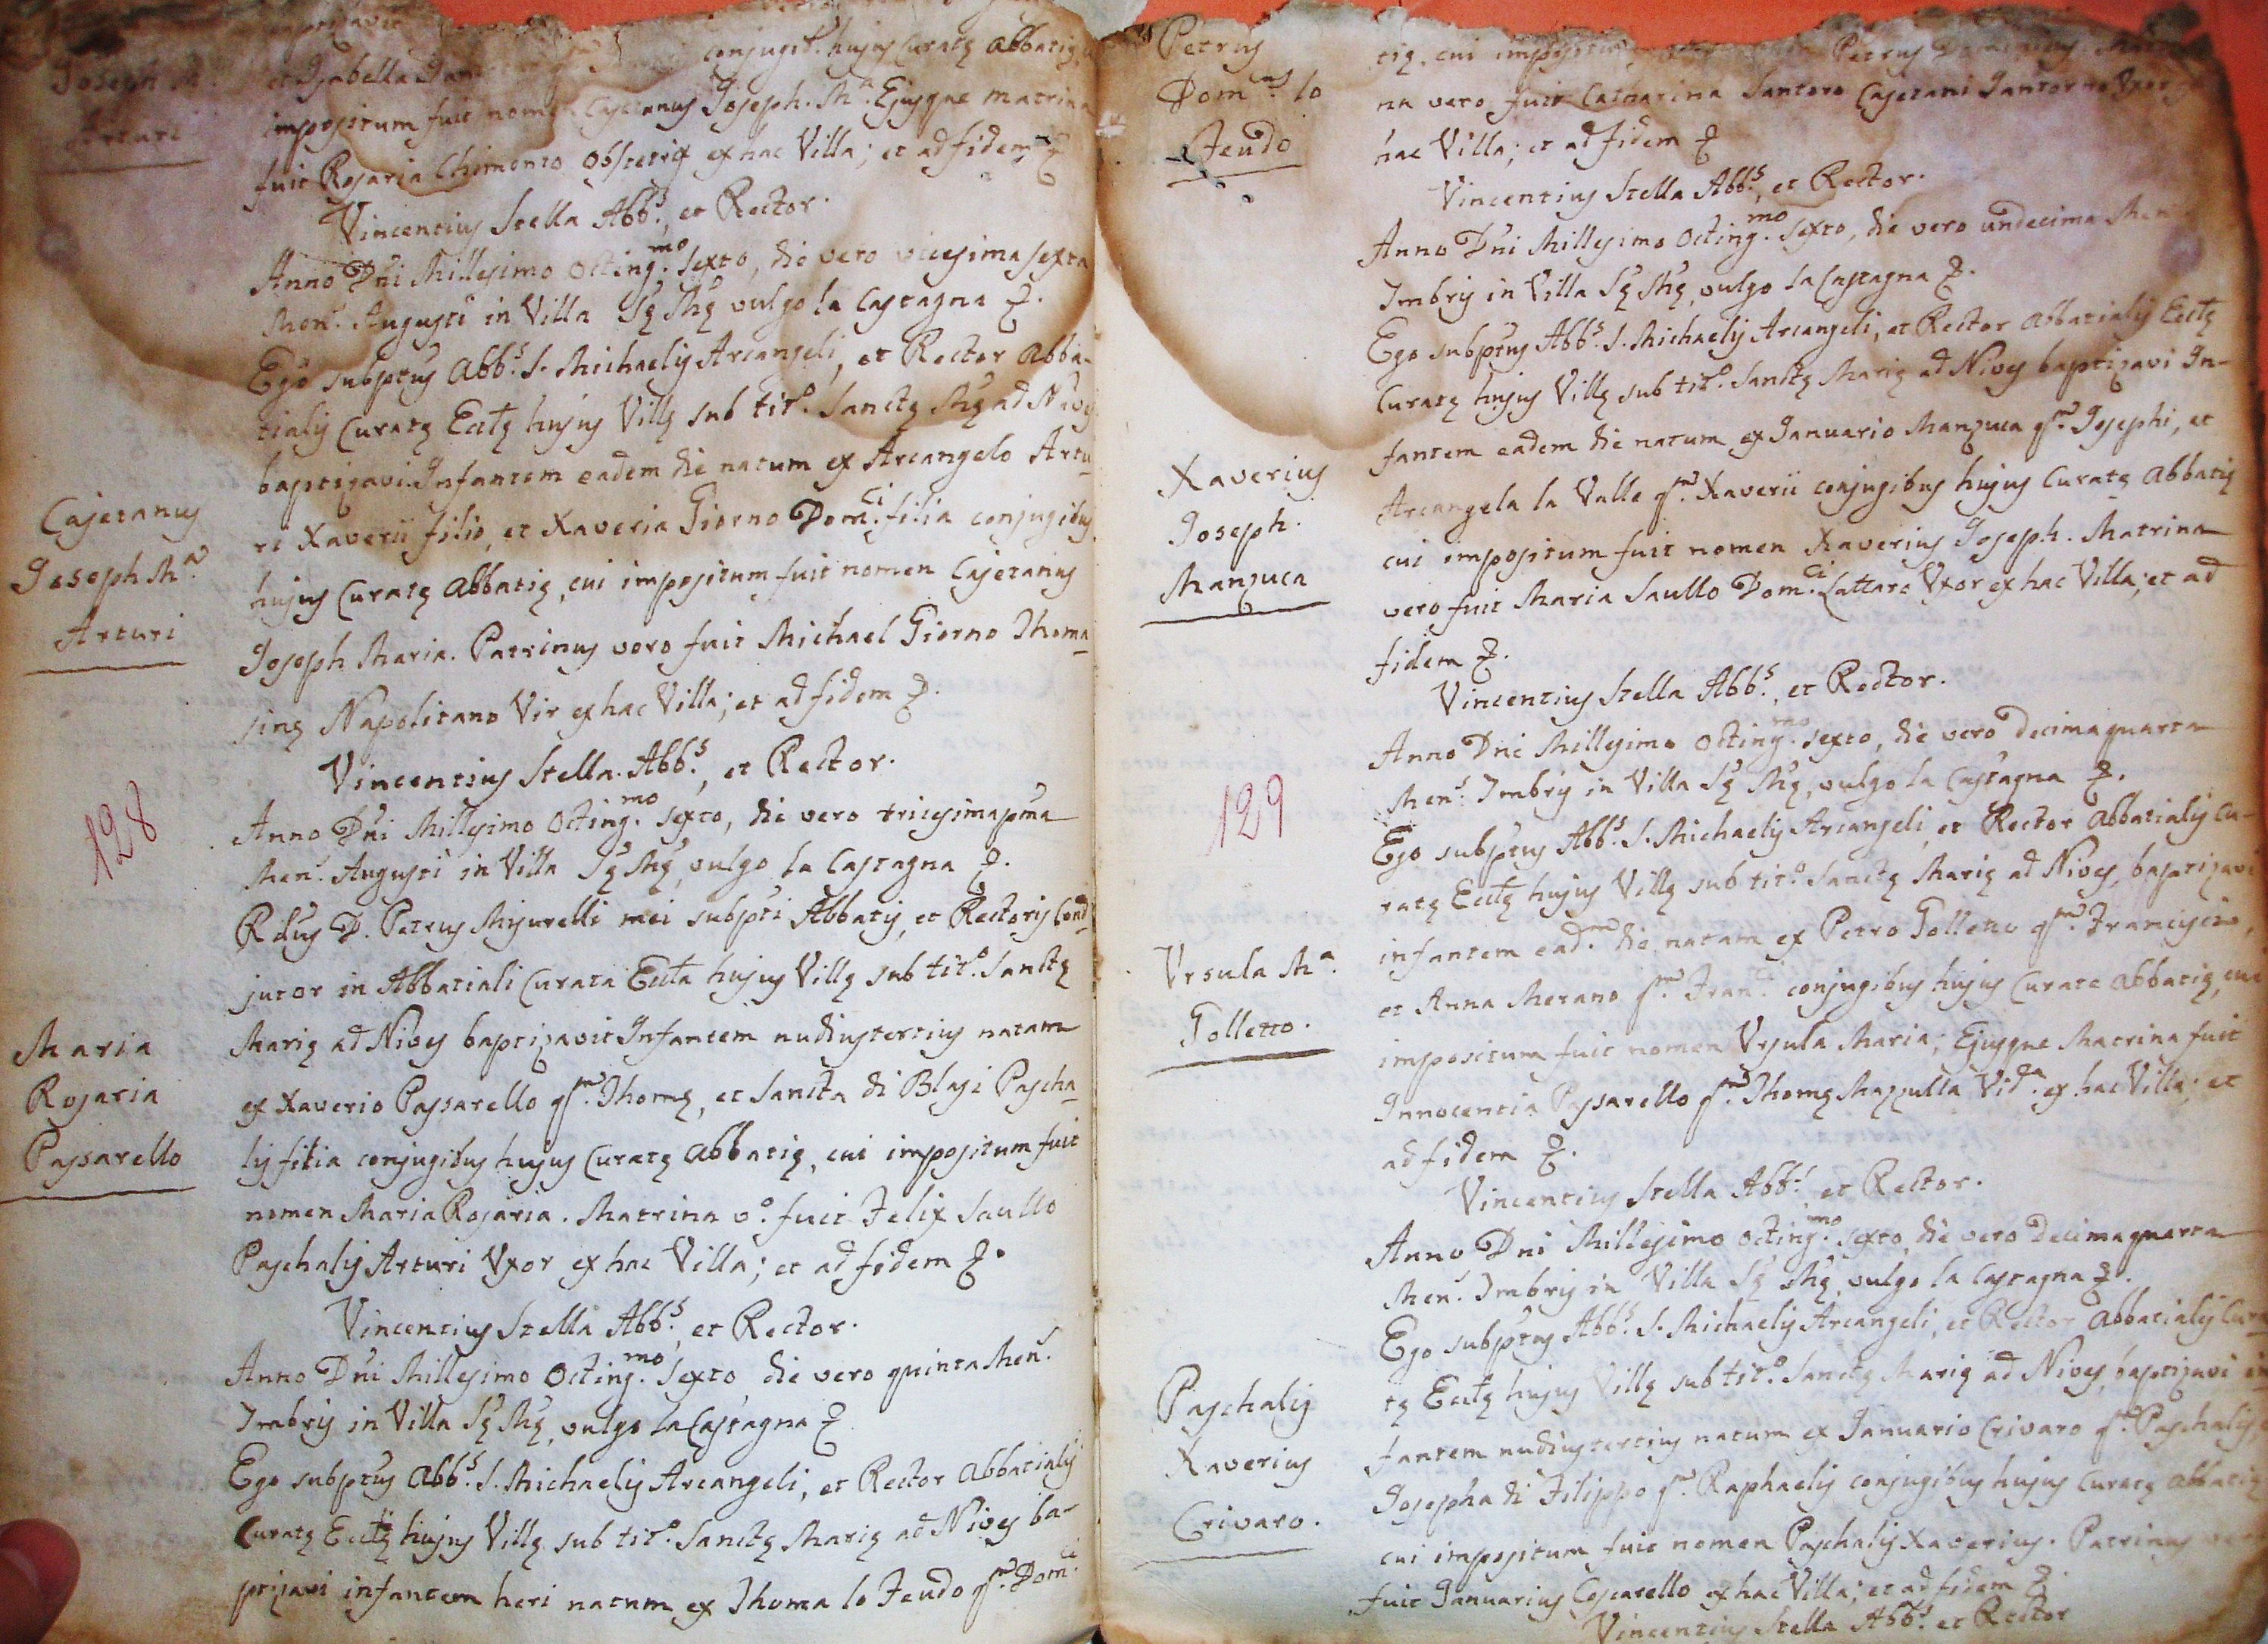 Joseph M.
Arturi
baptizavit
et Isabella conjugib. hujus Curatę Abbatię
impositum fuit nomen Cajetanus Joseph. Mª. Ejusque matrina
fuit Rosaria Chimento Obstetrix ex hac Villa; et ad fidem
Vincentius Stella Abbˢ., et Rector.
Anno Dni Millesimo Octing.ᵐᵒ Sexto, die vero vicesima sexta
Men. Augusti in Villa Sę Mę, vulgo la Castagna
Ego subptus Abbˢ. S. Michaelis Arcangeli, et Rector Abba-
tialis Curatę Ecclę hujus Villę sub tit.º Sanctę Mę ad Nives
baptizavi Infantem eadem die natum ex Arcangelo Artu-
ri Xaverii filio, et Xaveria Giorno Dom.ᶜⁱ filia conjugibus
hujus Curatę Abbatię, cui impositum fuit nomen Cajetanus
Joseph Maria. Patrinus vero fuit Michael Giorno Thoma-
sinę Napolitano Vir ex hac Villa; et ad fidem
Vincentius Stella Abbˢ., et Rector.
Cajetanus
Joseph Mª.
Arturi
128
Anno Dni Millesimo Octing.ᵐᵒ Sexto, die vero tricesimapma
Men. Augusti in Villa Sę Mę, vulgo la Castagna
Rdus D. Petrus Misurelli mei subpti Abbatis, et Rectoris Coad-
jutor in Abbatiali Curata Eccla hujus Villę sub tit.º Sanctę
Marię ad Nives baptizavit Infantem nudiustertius natam
ex Xaverio Passarello qᵐ. Thomę, et Sancta di Blasi Pascha-
lis filia conjugibus hujus Curatę Abbatię, cui impositum fuit
nomen Maria Rosaria. Matrina vº. fuit Felix Saullo
Paschalis Arturi Uxor ex hac Villa; et ad fidem
Vincentius Stella Abbˢ., et Rector.
Maria
Rosaria
Passarello
Anno Dni Millesimo Octing.ᵐᵒ Sexto, die vero quinta Men.
Imbris in Villa Sę Mę, vulgo la Castagna
Ego subptus Abbˢ. S. Michaelis Arcangeli, et Rector Abbatialis
Curatę Ecclę hujus Villę sub tit.º Sanctę Marię ad Nives ba-
ptizavi infantem heri natum ex Thoma lo Feudo qᵐ. Dom.ᶜⁱ
Petrus
Dom.ᵘˢ lo
Feudo
tię, cui impositum Petrus Dominicus. Matri
na vero fuit Catharina Santoro Cajetani Santorno Uxor
hac Villa; et ad fidem
Vincentius Stella Abbˢ., et Rector.
Anno Dni Millesimo Octing.ᵐᵒ Sexto, die vero undecima Men
Imbris in Villa Sę Mę, vulgo la Castagna
Ego subptus Abbˢ. S. Michaelis Arcangeli, et Rector Abbatialis Ecclę
Curatę hujus Villę sub tit.º Sanctę Marię ad Nives baptizavi In-
fantem eadem die natum ex Januario Manzuca qᵐ. Josephi, et
Arcangela la Valle qᵐ. Xaverii conjugibus hujus Curatę Abbatię
cui impositum fuit nomen Xaverius Joseph. Matrina
vero fuit Maria Saullo Dom.ᶜⁱ Lattaro Uxor ex hac Villa; et ad
fidem
Vincentius Stella Abbˢ., et Rector.
Xaverius
Joseph.
Manzuca
129
Anno Dni Millesimo Octing.ᵐᵒ Sexto, die vero decimaquarta
Men. Imbris in Villa Sę Mę, vulgo la Castagna
Ego subptus Abbˢ. S. Michaelis Arcangeli, et Rector Abbatialis Cu-
ratę Ecclę hujus Villę sub tit.º Sanctę Marię ad Nives, baptizavi
infantem ead.ᵐ die natam ex Petro Folletto qᵐ. Francisci,
et Anna Merano qᵐ. Fran.ᶜⁱ conjugibus hujus Curate Abbatię, cui
impositum fuit nomen Ursula Maria; Ejusque Matrina fuit
Innocentia Passarello qᵐ. Thomę Mazzulla Vidª. ex hac Villa; et
ad fidem
Vincentius Stella Abbˢ. et Rector.
Ursula Mª.
Folletto.
Anno Dni Millesimo Octing.ᵐᵒ Sexto, die vero decimaquarta
Men. Imbris in Villa Sę Mę, vulgo la Castagna
Ego subptus Abbˢ. S. Michaelis Arcangeli, et Rector Abbatialis Cura-
tę Ecclę hujus Villę sub tit.º Sanctę Marię ad Nives, baptizavi in
fantem nudiustertius natum ex Januario Crivaro qᵐ. Paschalis
Josepha di Filippo qᵐ. Raphaelis conjugibus hujus Curatę Abbatię
cui impositum fuit nomen Paschalis Xaverius. Patrinus
fuit Januarius Coscarello ex hac Villa; et ad fidem
Vincentius Stella Abbˢ. et Rector
Paschalis
Xaverius
Crivaro.